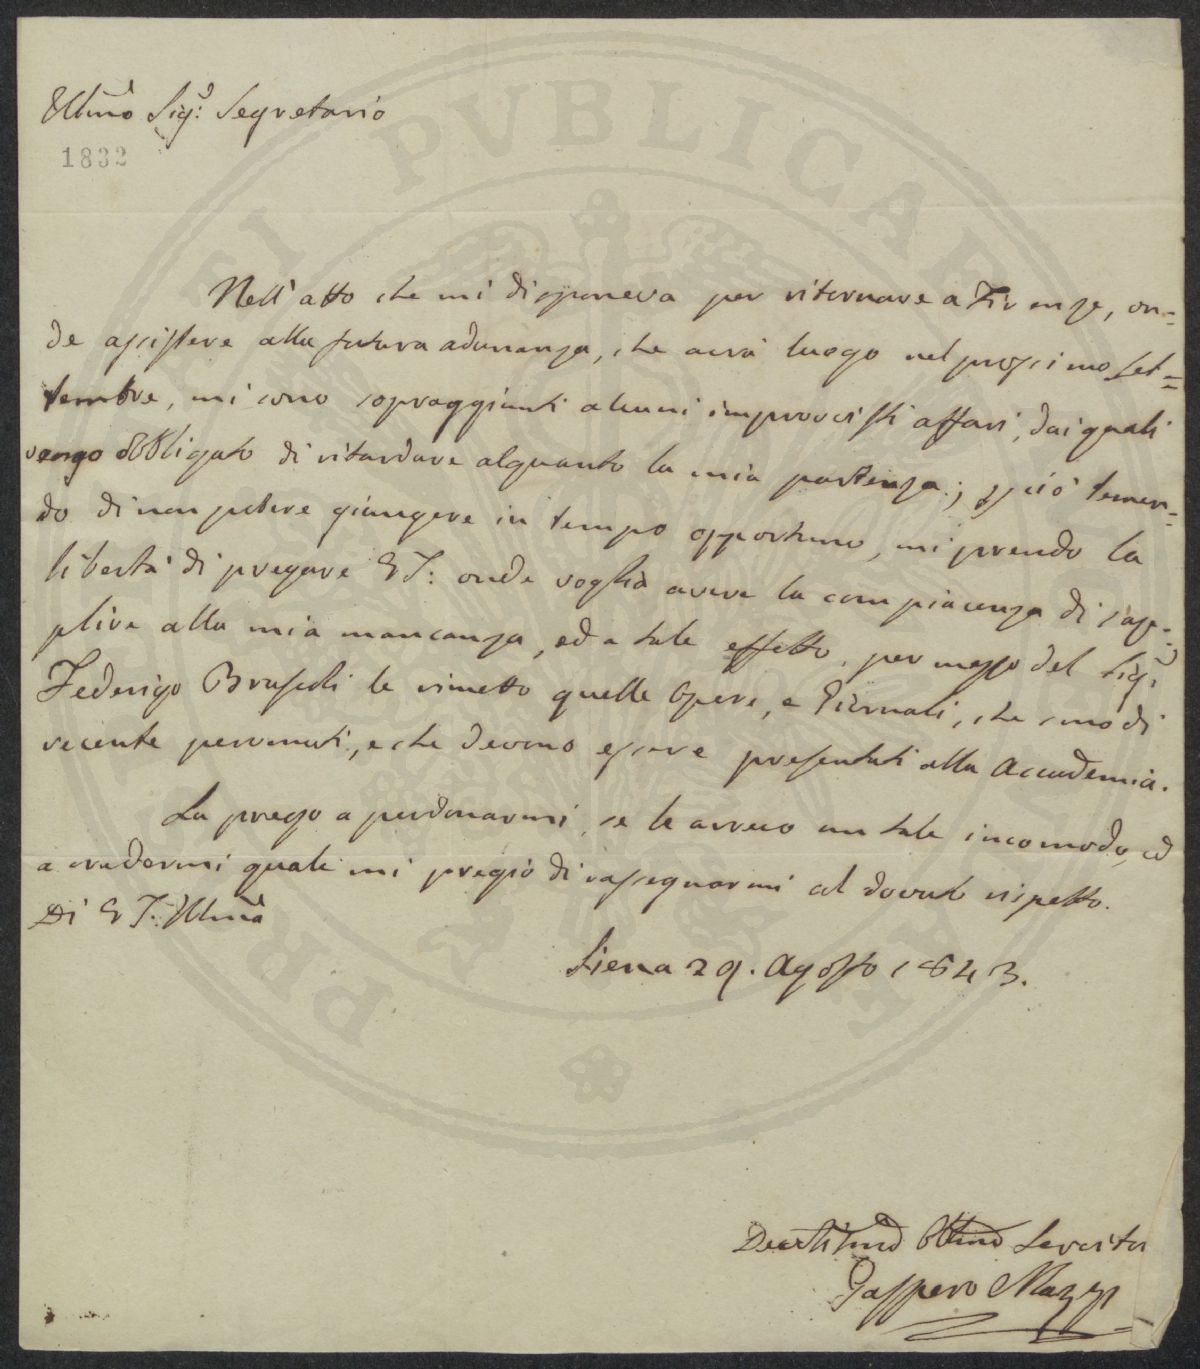 Illmo Sig: Segretario
1832
PVBLICAE REI PR
Nell'atto che mi disponeva per ritornare a Firenze, on=
de assistere alla futura adunanza, che avrà luogo nel prossimo Set=
tembre, mi sono sopraggiunti alcuni improvvisti affari, dai quali
vengo obbligato di ritardare alquanto la mia partenza; e ciò temen=
do di non potere giungere in tempo opportuno, mi prendo la
libertà di pregare di onde voglia avere la compiacenza di sup=
plire alla mia mancanza, ed a tale effetto, per mezzo del Sig:
Federigo le rimetto quelle Opere, e Giornali, che sono di
recente pervenuti, e che devono essere presentati alla Accademia.
La prego a perdonarmi, se le arreco un tale incomodo, ed
a credermi quale mi pregio di rassegnarmi col dovuto rispetto.
Di Illma
Siena 29. Agosto 1843.
Devotismo Obbmo Servitor
Gaspero Mazzi